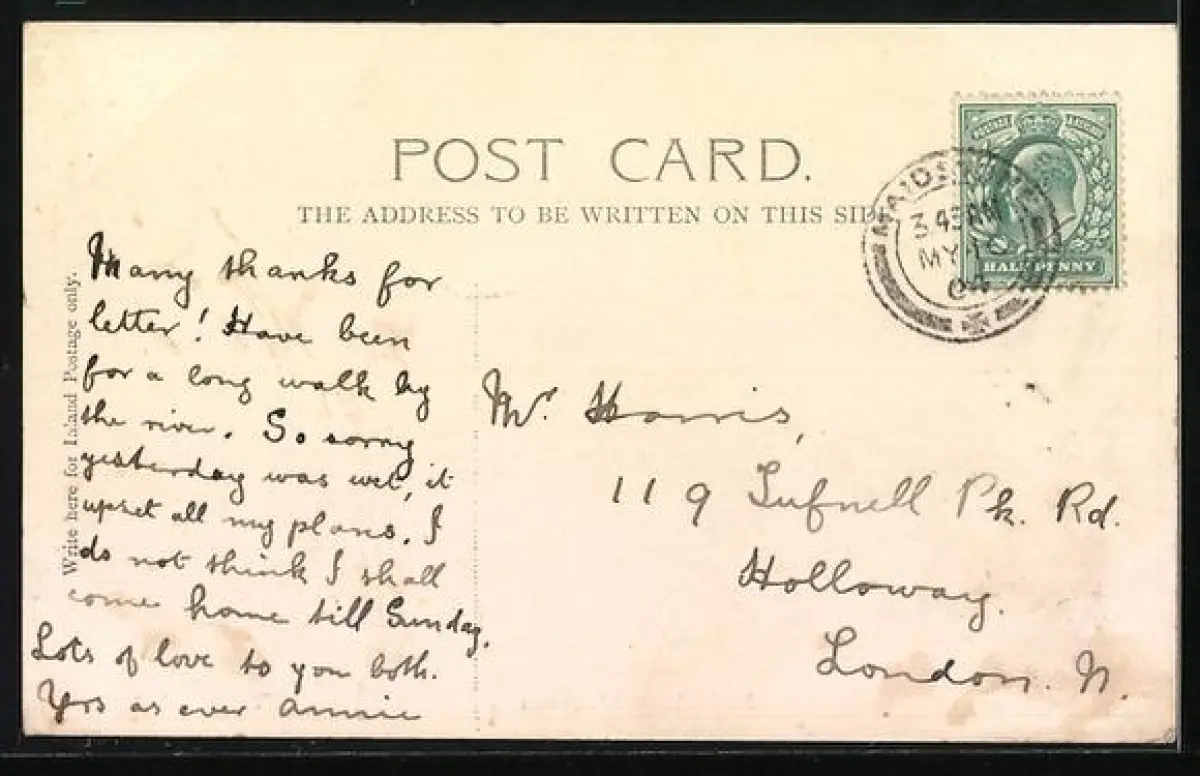 POST CARD.
THE ADDRESS TO BE WRITTEN ON THIS SIDE
Write here for Inland Postage only.
Many thanks for
letter! Have been
for a long walk by
the river. So sorry
yesterday was wet, it
upset all my plans. I
do not think I shall
come home till Sunday.
Lots of love to you both.
Yrs as ever Annie
HALF PENNY
3.45 AM
MY
04
Mr. Harris,
119 Tufnell Pk. Rd.
Holloway.
London. N.